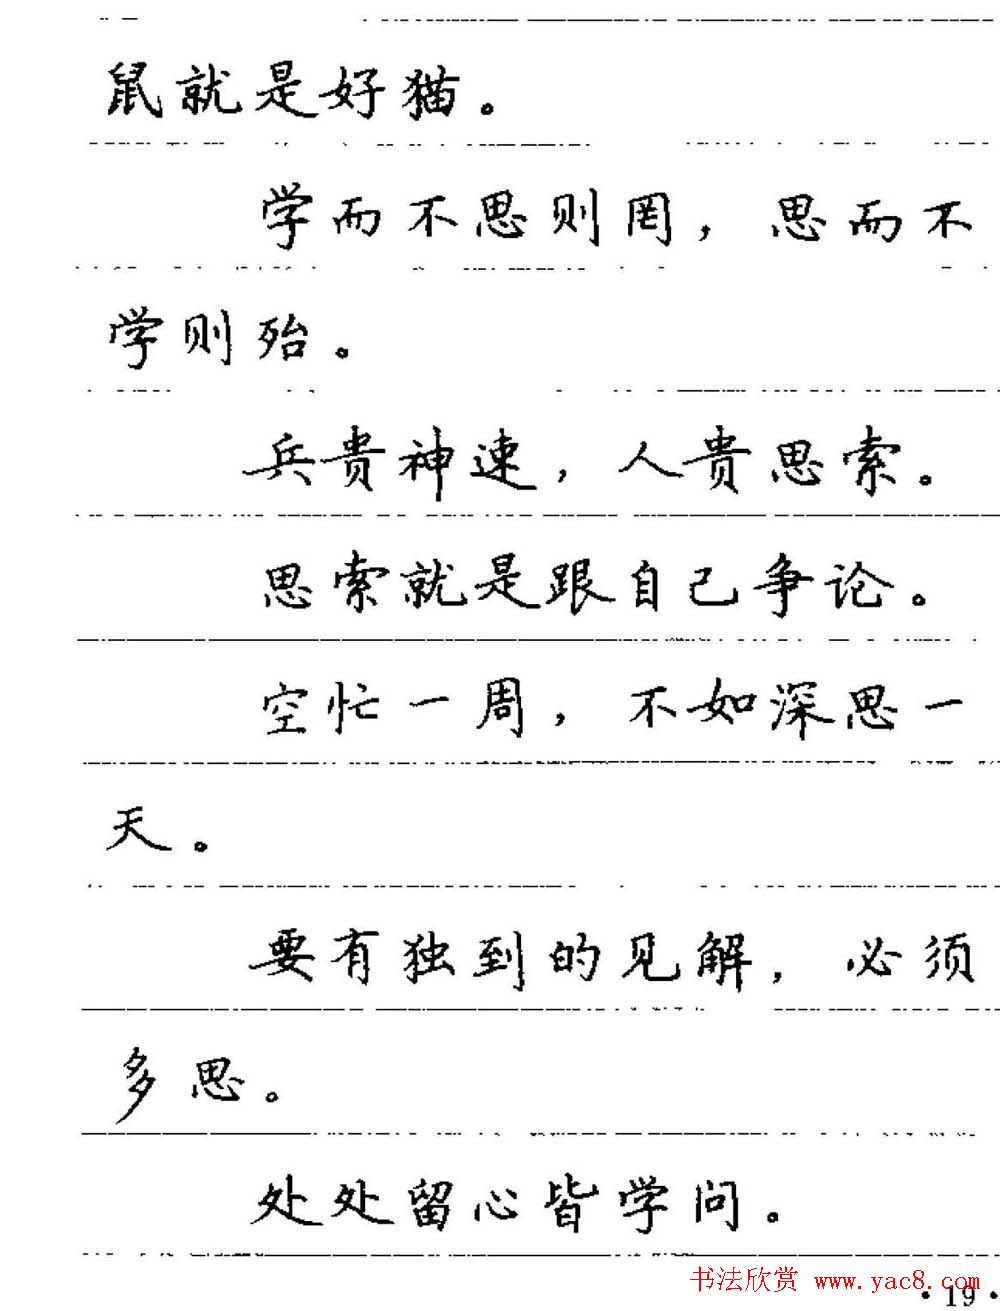 鼠就是好猫。
学而不思则罔，思而不
学则殆。
兵贵神速，人贵思索。
思索就是跟自己争论。
空忙一周，不如深思一
天。
要有独到的见解，必须
多思。
处处留心皆学问。
书法欣赏 www.yac8.com
·19·